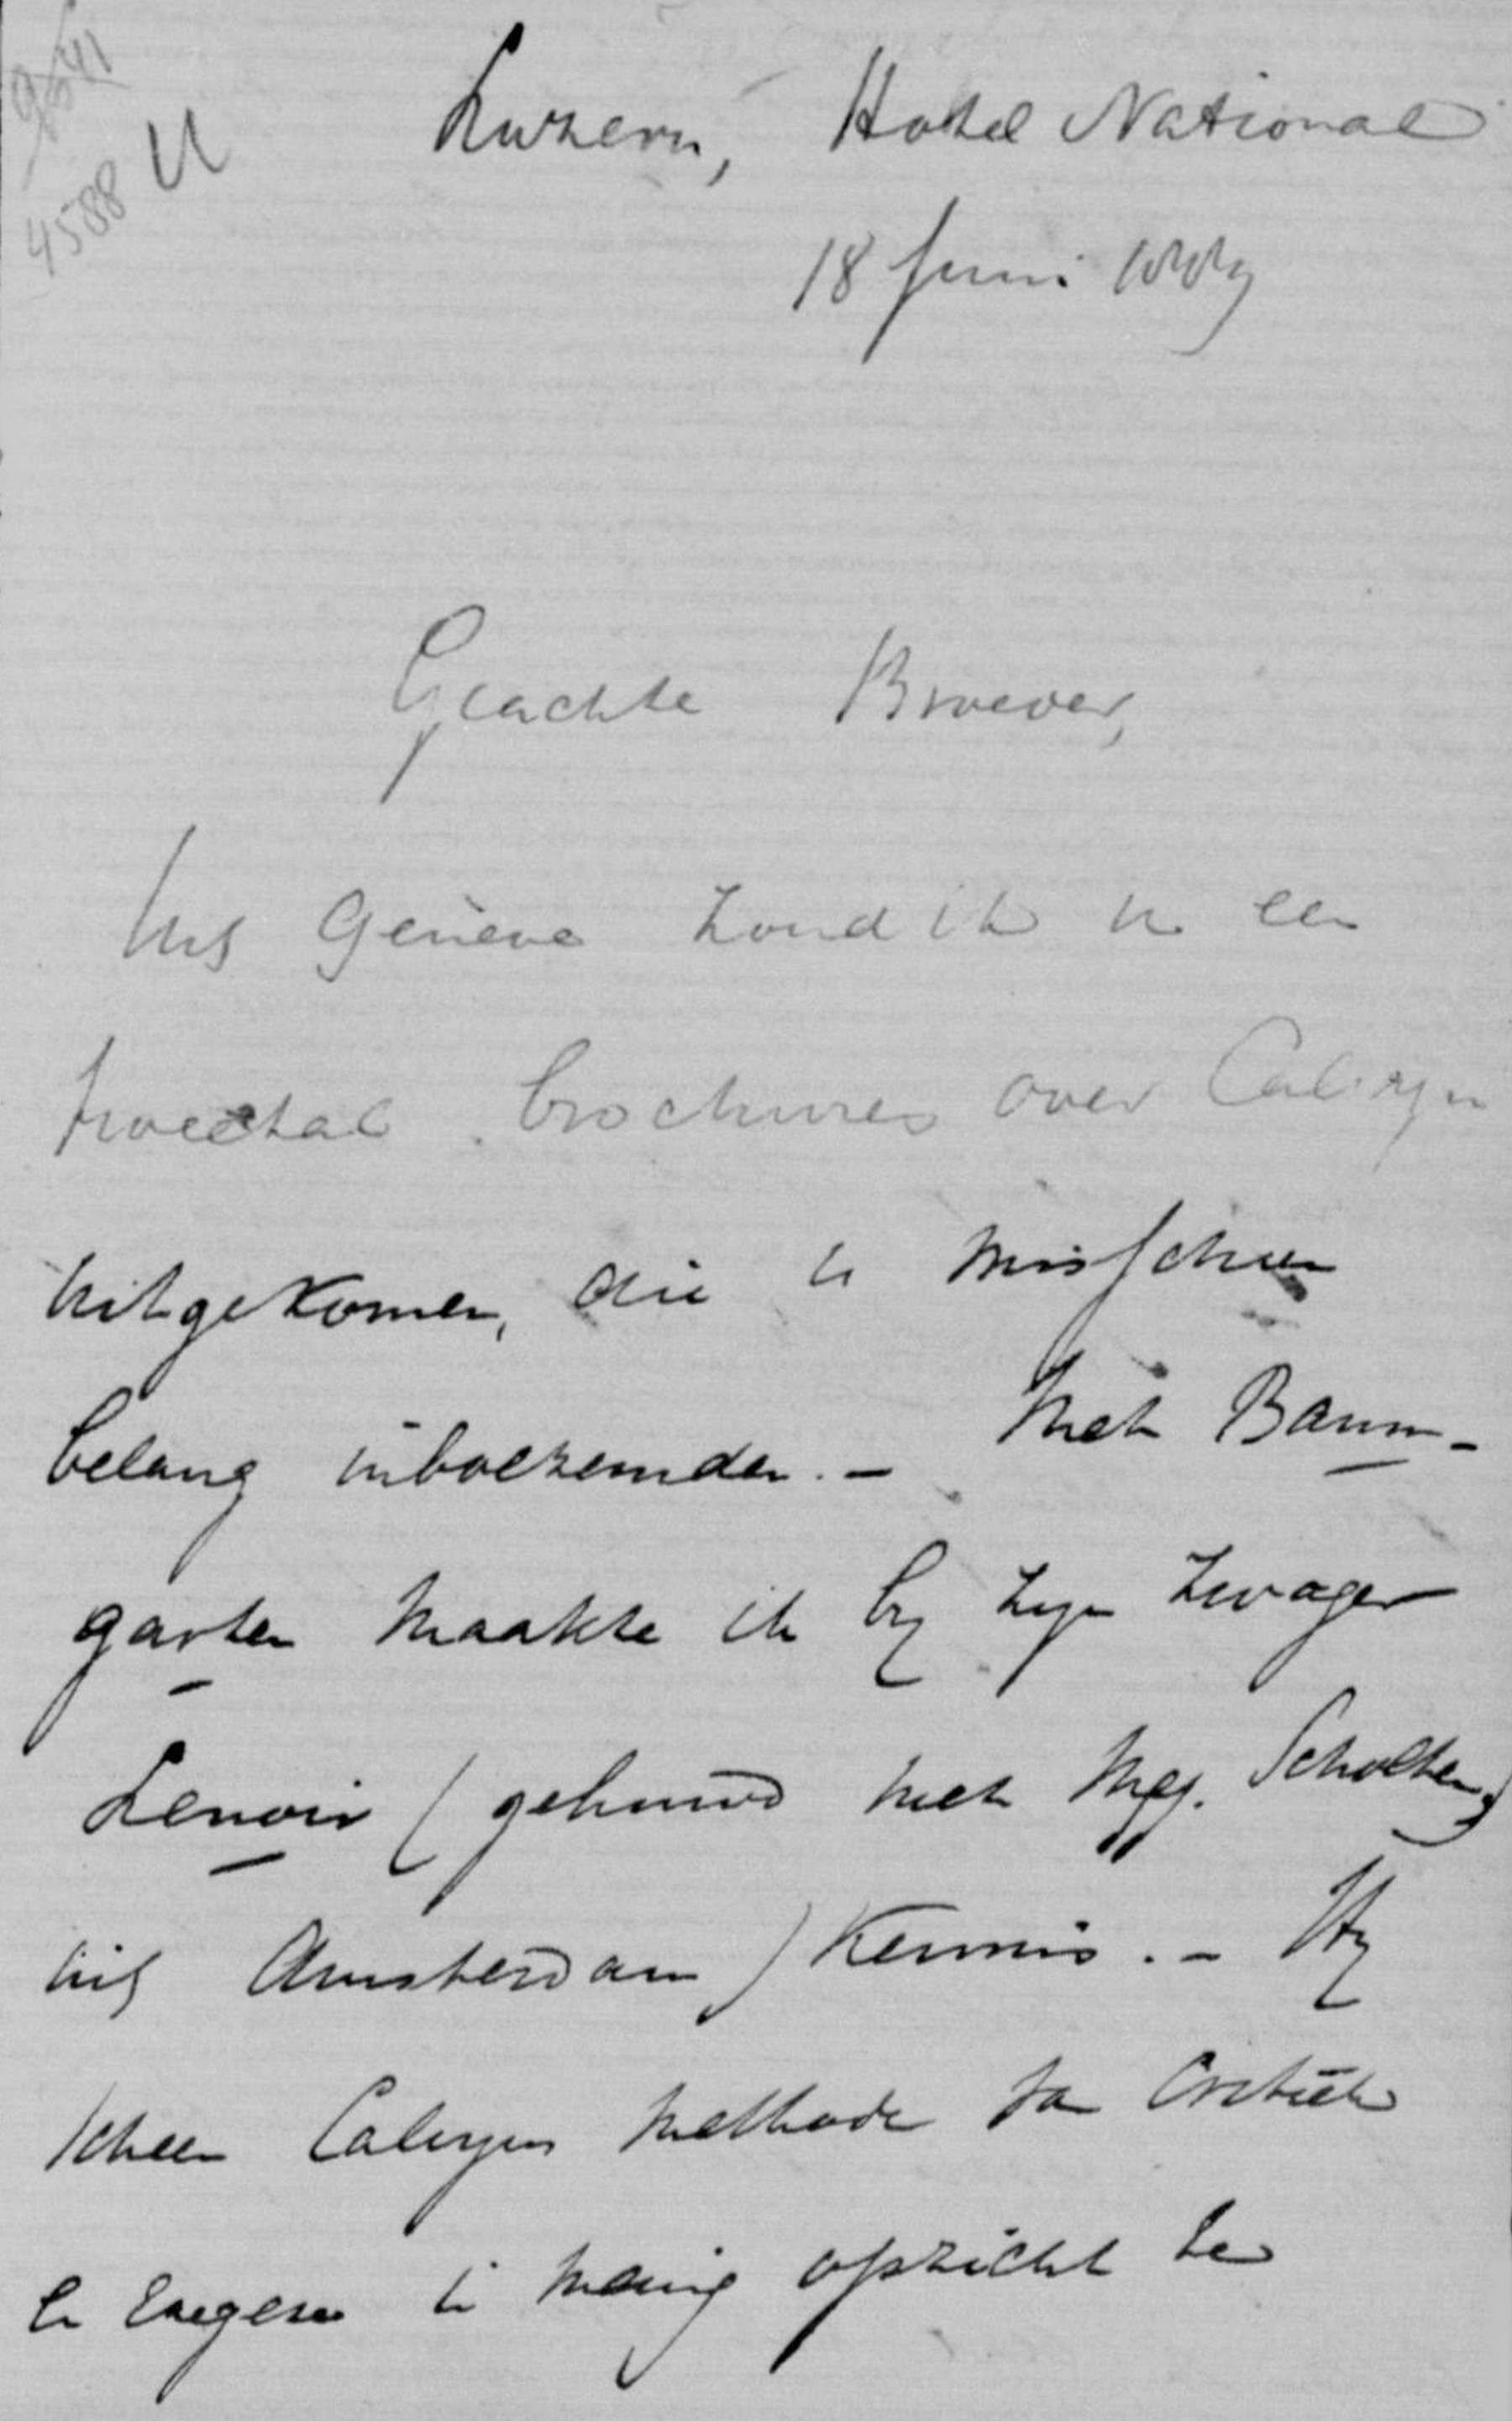 4588 U
Luzern, Hotel National
18 Juni 1889
Geachte Broeder,
Uit Genève zond ik u een
tweetal brochures over Calvyn
uitgekomen, die u misschien
belang inboezemden. - Met Baum-
garten maakte ik by zyn zwager
Lenoir (gehuwd met Mej. Scholten,
uit Amsterdam) kennis. - Hy
scheen Calvyns methode van Critiek
en Exegese in menig opzicht te